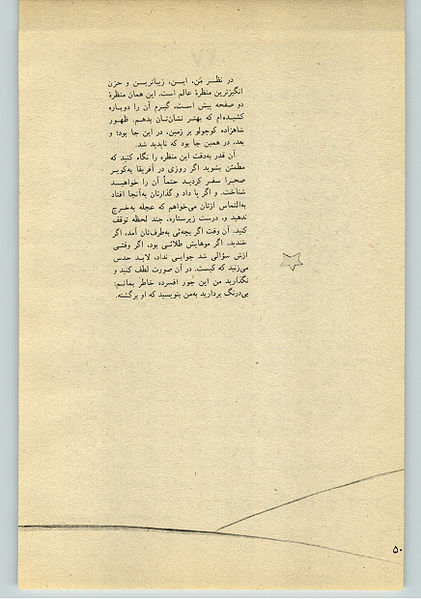 در نظر مَن، این، زیباترین و حزن
انگیزترین منظرهٔ عالم است. این همان منظرهٔ
دو صفحه پیش است، گیرم آن را دوباره
کشیده‌ام که بهتر نشان‌تان بدهم. ظهور
شاهزاده کوچولو بر زمین، در این جا بود؛ و
بعد، در همین جا بود که ناپدید شد.
آن قدر به‌دقت این منظره را نگاه کنید که
مطمئن بشوید اگر روزی در آفریقا به‌کویر
صحرا سفر کردید حتماً آن را خواهید
شناخت. و اگر پا داد و گذارتان به‌آنجا افتاد
به‌التماس ازتان می‌خواهم که عجله به‌خرج
ندهید و، درست زیر ستاره، چند لحظه توقف
کنید. آن وقت اگر بچه‌ئی به‌طرف‌تان آمد، اگر
خندید، اگر موهایش طلائی بود، اگر وقتی
ازش سؤالی شد جوابی نداد، لابد حدس
می‌زنید که کیست. در آن صورت لطف کنید و
نگذارید من این جور افسرده خاطر بمانم:
بی‌درنگ بردارید به‌من بنویسید که او برگشته.
۵۰